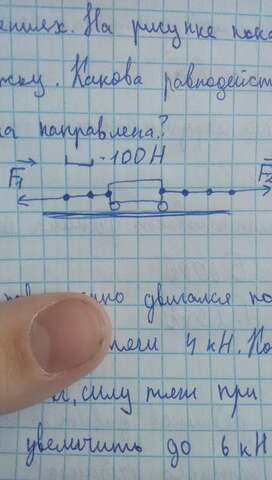 ениях. На рисунке пока
жку. Какова равнодейст
на направлена?
- 100 Н
F₁ F₂
двигался по
тяги 4 кН. Ко
силу тяги при
увеличить до 6 кН